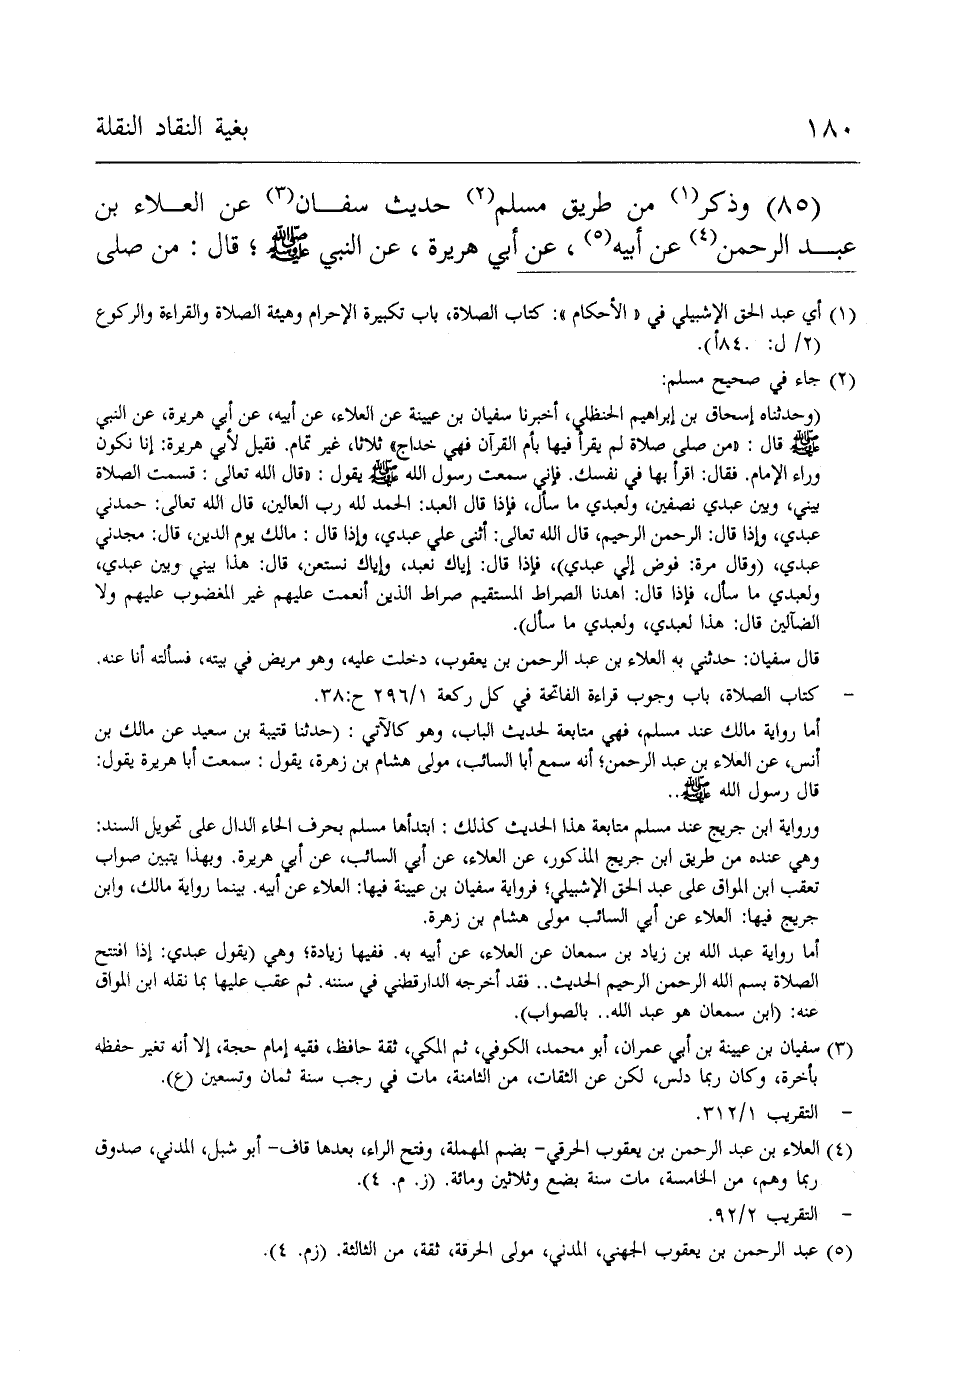 ١٨٠ بغية النقاد النقلة
(٨٥) وذكر(١) من طريق مسلم(٢) حديث سفــان(٣) عن العــلاء بن
عبــد الرحمن(٤) عن أبيه(٥) ، عن أبي هريرة ، عن النبي ﷺ ؛ قال : من صلى
(١) أي عبد الحق الإشبيلي في « الأحكام »: كتاب الصلاة، باب تكبيرة الإحرام وهيئة الصلاة والقراءة والركوع
(٢/ ل: ٨٤٠.أ).
(٢) جاء في صحيح مسلم:
(وحدثناه إسحاق بن إبراهيم الحنظلي، أخبرنا سفيان بن عيينة عن العلاء، عن أبيه، عن أبي هريرة، عن النبي
ﷺ قال : «من صلى صلاة لم يقرأ فيها بأم القرآن فهي خداج» ثلاثا، غير تمام. فقيل لأبي هريرة: إنا نكون
وراء الإمام. فقال: اقرأ بها في نفسك. فإني سمعت رسول الله ﷺ يقول : «قال الله تعالى : قسمت الصلاة
بيني، وبين عبدي نصفين، ولعبدي ما سأل، فإذا قال العبد: الحمد لله رب العالين، قال الله تعالى: حمدني
عبدي، وإذا قال: الرحمن الرحيم، قال الله تعالى: أثنى علي عبدي، وإذا قال : مالك يوم الدين، قال: مجدني
عبدي، (وقال مرة: فوض إلي عبدي)، فإذا قال: إياك نعبد، وإياك نستعن، قال: هذا بيني وبين عبدي،
ولعبدي ما سأل، فإذا قال: اهدنا الصراط المستقيم صراط الذين أنعمت عليهم غير المغضوب عليهم ولا
الضآلين قال: هذا لعبدي، ولعبدي ما سأل).
قال سفيان: حدثني به العلاء بن عبد الرحمن بن يعقوب، دخلت عليه، وهو مريض في بيته، فسألته أنا عنه.
– كتاب الصلاة، باب وجوب قراءة الفاتحة في كل ركعة ٢٩٦/١ ح:٣٨.
أما رواية مالك عند مسلم، فهي متابعة لحديث الباب، وهو كالآتي : (حدثنا قتيبة بن سعيد عن مالك بن
أنس، عن العلاء بن عبد الرحمن؛ أنه سمع أبا السائب، مولى هشام بن زهرة، يقول : سمعت أبا هريرة يقول:
قال رسول الله ﷺ..
ورواية ابن جريج عند مسلم متابعة هذا الحديث كذلك : ابتدأها مسلم بحرف الحاء الدال على تحويل السند:
وهي عنده من طريق ابن جريج المذكور، عن العلاء، عن أبي السائب، عن أبي هريرة. وبهذا يتبين صواب
تعقب ابن المواق على عبد الحق الإشبيلي؛ فرواية سفيان بن عيينة فيها: العلاء عن أبيه. بينما رواية مالك، وابن
جريج فيها: العلاء عن أبي السائب مولى هشام بن زهرة.
أما رواية عبد الله بن زياد بن سمعان عن العلاء، عن أبيه به. ففيها زيادة؛ وهي (يقول عبدي: إذا افتتح
الصلاة بسم الله الرحمن الرحيم الحديث.. فقد أخرجه الدارقطني في سننه. ثم عقب عليها بما نقله ابن المواق
عنه: (ابن سمعان هو عبد الله.. بالصواب).
(٣) سفيان بن عيينة بن أبي عمران، أبو محمد، الكوفي، ثم المكي، ثقة حافظ، فقيه إمام حجة، إلا أنه تغير حفظه
بأخرة، وكان ربما دلس، لكن عن الثقات، من الثامنة، مات في رجب سنة ثمان وتسعين (ع).
– التقريب ٣١٢/١.
(٤) العلاء بن عبد الرحمن بن يعقوب الحرقي– بضم المهملة، وفتح الراء، بعدها قاف– أبو شبل، المدني، صدوق
ربما وهم، من الخامسة، مات سنة بضع وثلاثين ومائة. (ز. م. ٤).
– التقريب ٩٢/٢.
(٥) عبد الرحمن بن يعقوب الجهني، المدني، مولى الحرقة، ثقة، من الثالثة. (زم. ٤).